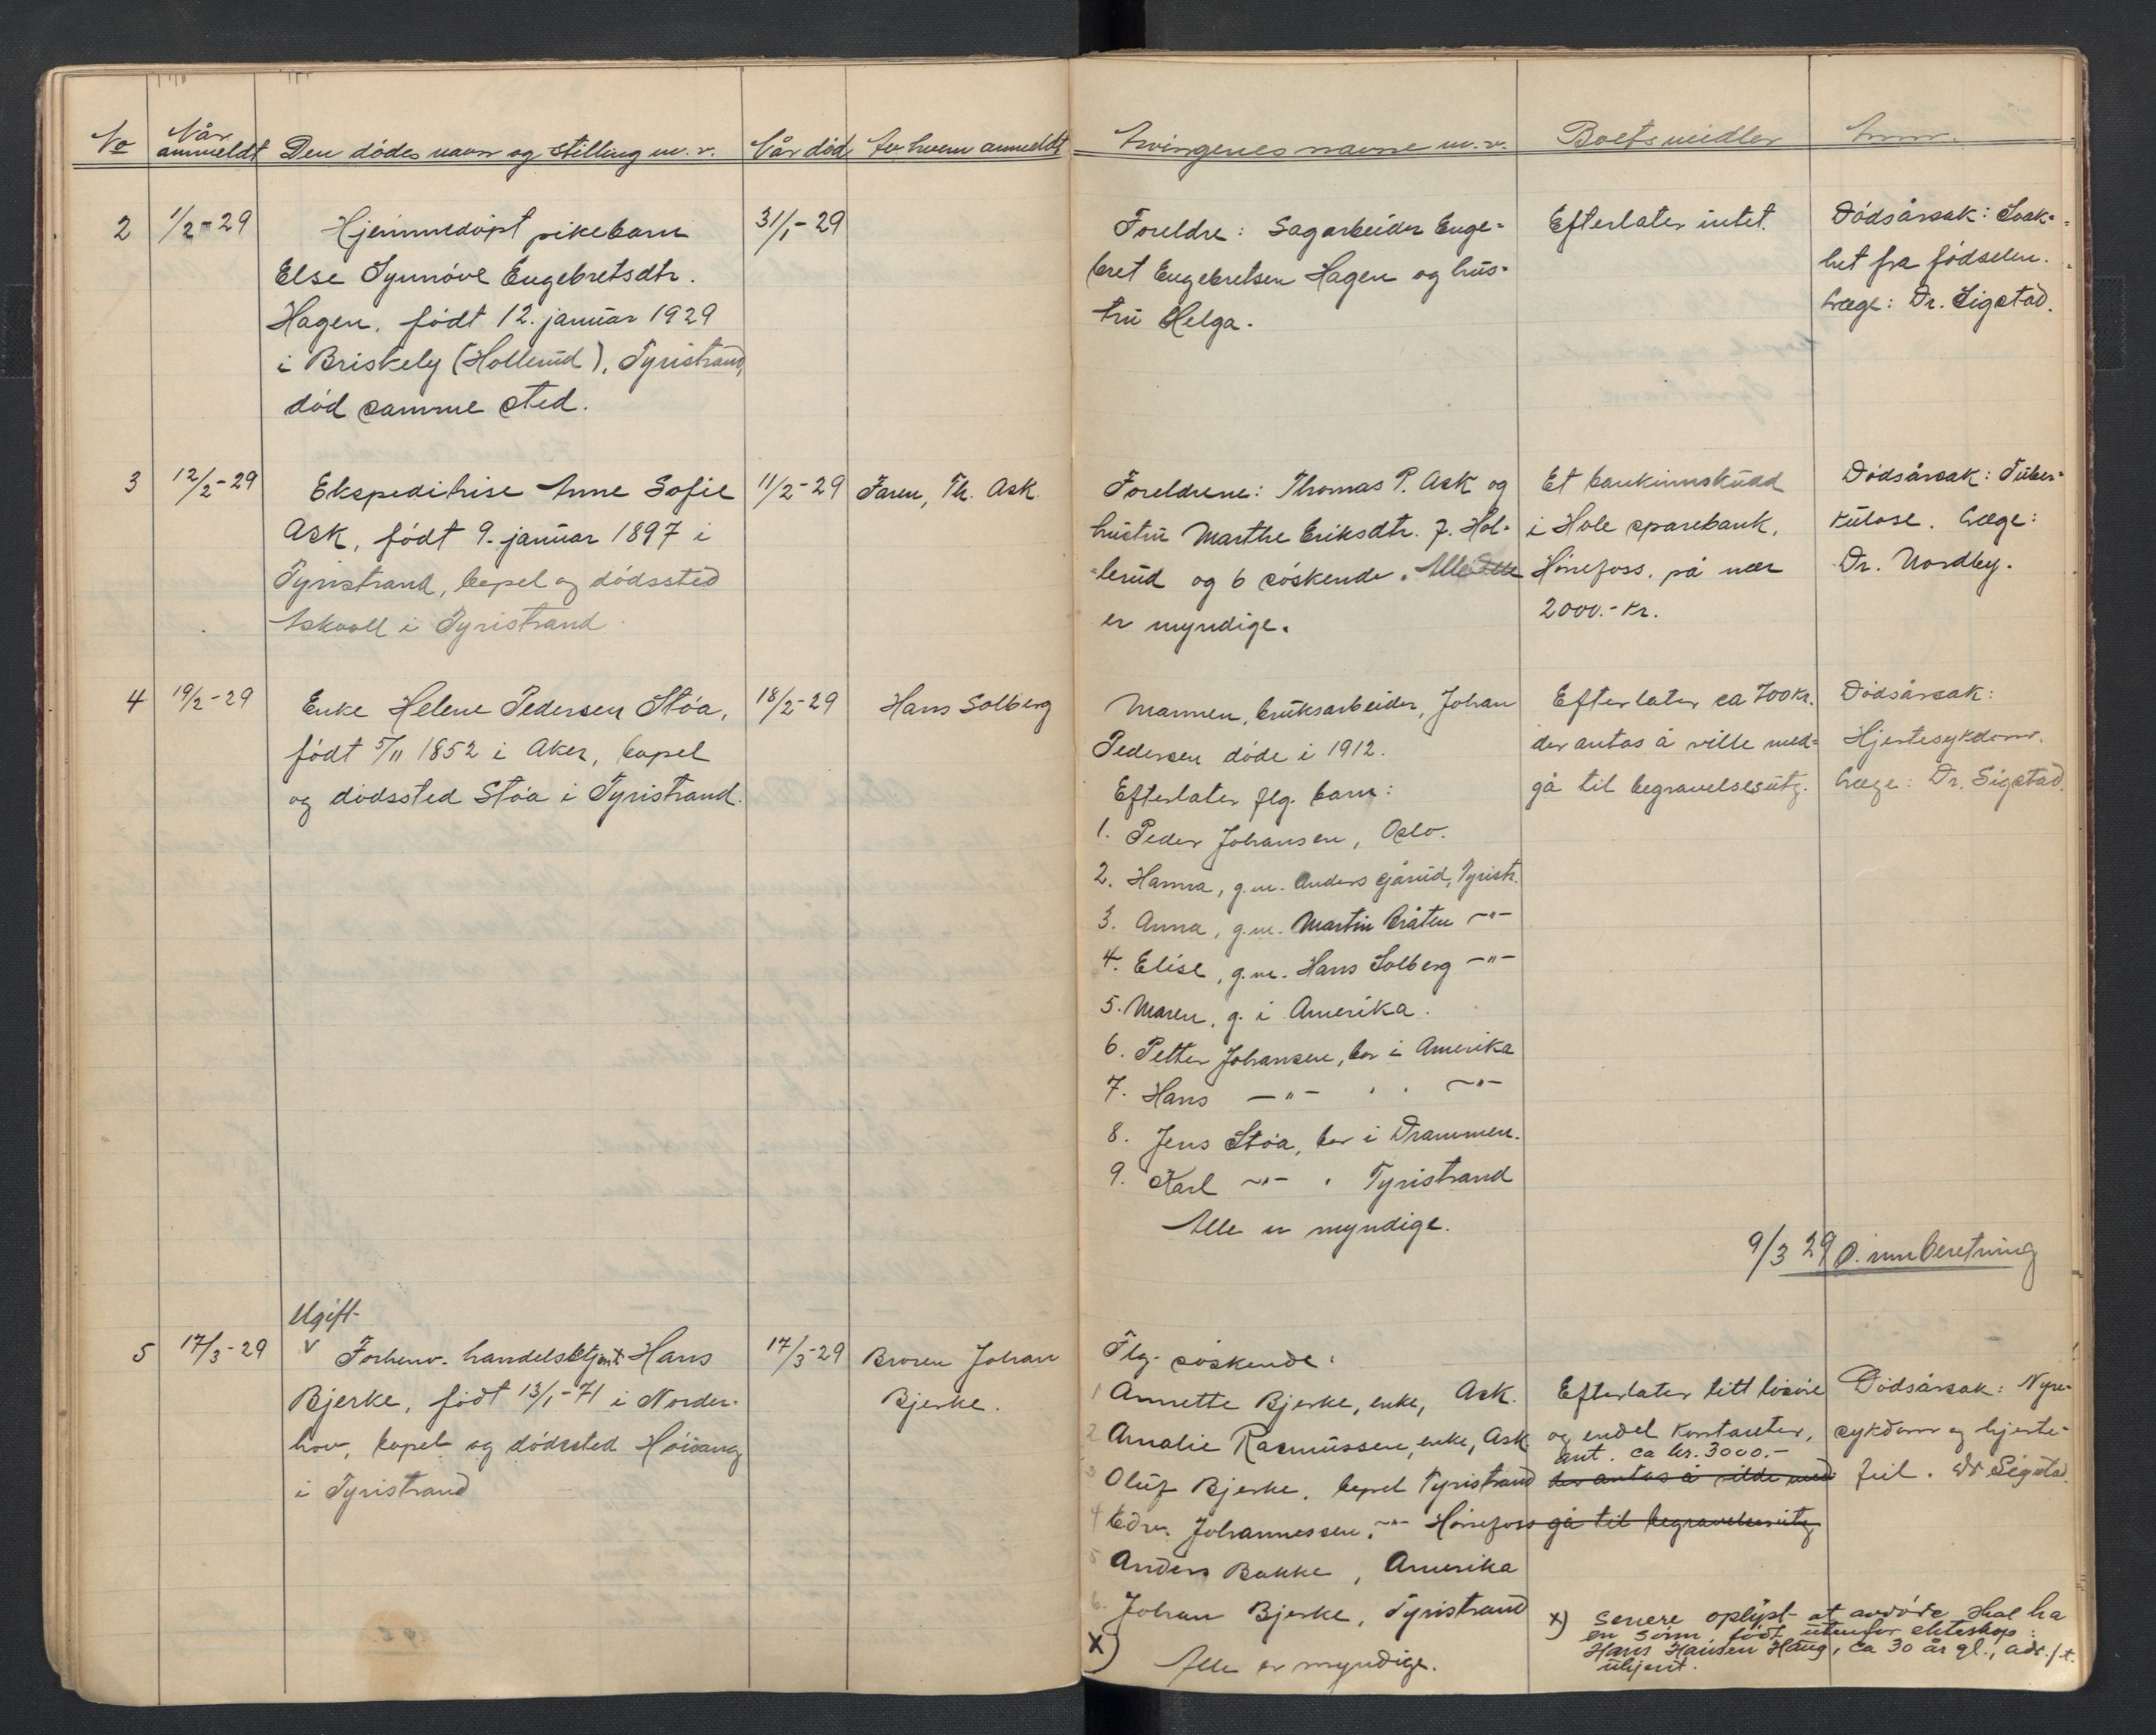 No
Når anmeldt
Den dødes navn og stilling m. v.
Når død
Av hvem anmeldt
Arvingenes navne m. v.
Boets midler
Anm.
2
1/2-29
Hjemmedöpt pikebarn
Else Synnöve Engebretsdtr.
Hagen, födt 12. januar 1929
i Briskely (Hollerud), Tyristrand,
död samme sted.
31/1-29
Foreldre: Sagarbeider Enge=
bret Engebretsen Hagen og hus=
tru Helga.
Efterlater intet.
Dödsårsak: Svak=
het fra födselen.
Læge: Dr. Sigstad.
3
12/2-29
Ekspeditrise Anne Sofie
Ask, födt 9. januar 1897 i
Tyristrand, bopel og dödssted
Askvoll i Tyristrand.
11/2-29
Faren, Th. Ask.
Foreldrene: Thomas P. Ask og
hustru Marthe Eriksdtr. f. Hol=
=lerud og 6 söskende. Alle
er myndige.
Et bankinnskudd
i Hole sparebank,
Hönefoss, på nær
2000.- kr.
Dödsårsak: Tuber=
kulose. Læge:
Dr. Nordby.
4
19/2-29
Enke Helene Pedersen Stöa,
födt 5/11 1852 i Aker, bopel
og dödssted Stöa i Tyristrand.
18/2-29
Hans Solberg
Mannen, bruksarbeider, Johan
Pedersen döde i 1912.
Efterlater flg. barn:
1. Peder Johansen, Oslo.
2. Hanna, g.m. Anders Gårud, Tyristr.
3. Anna, g.m. Martin Bråten -"-
4. Elise, g.m. Hans Solberg -"-
5. Maren, g. i Amerika.
6. Petter Johansen, bor i Amerika
7. Hans -"- . . -"-
8. Jens Stöa, bor i Drammen.
9. Karl -"- . Tyristrand
Alle er myndige.
Efterlater ca 700 kr.
der antas å ville med=
gå til begravelsesutg.
Dödsårsak:
Hjertesykdom.
Læge: Dr. Sigstad.
9/3 29 D. innberetning
5
17/3-29
Ugift
v Forhenv. handelsbetjent Hans
Bjerke, födt 13/1-71 i Norder=
hov, bopel og dödssted Höivang
i Tyristrand
17/3-29
Broren Johan
Bjerke.
Flg. söskende:
1 Annette Bjerke, enke, Ask.
2 Amalie Rasmussen, enke, Ask
3 Oluf Bjerke, bopel Tyristrand
4 Edv. Johannessen, -"- Hönefoss
5 Anders Bakke, Amerika
6. Johan Bjerke, Tyristrand
x)
Alle er myndige.
Efterlater litt lösöre
og endel kontanter,
ant. ca kr. 3000.-
der antas å vilde med
gå til begravelsesutg.
Dödsårsak: Nyre=
sykdom og hjerte=
feil. Dr Sigstad.
x) Senere oplyst at avdöde skal ha
en sönn, födt utenfor ekteskap:
Hans Hansen Haug, ca 30 år gl., adr. f.t.
ukjent.